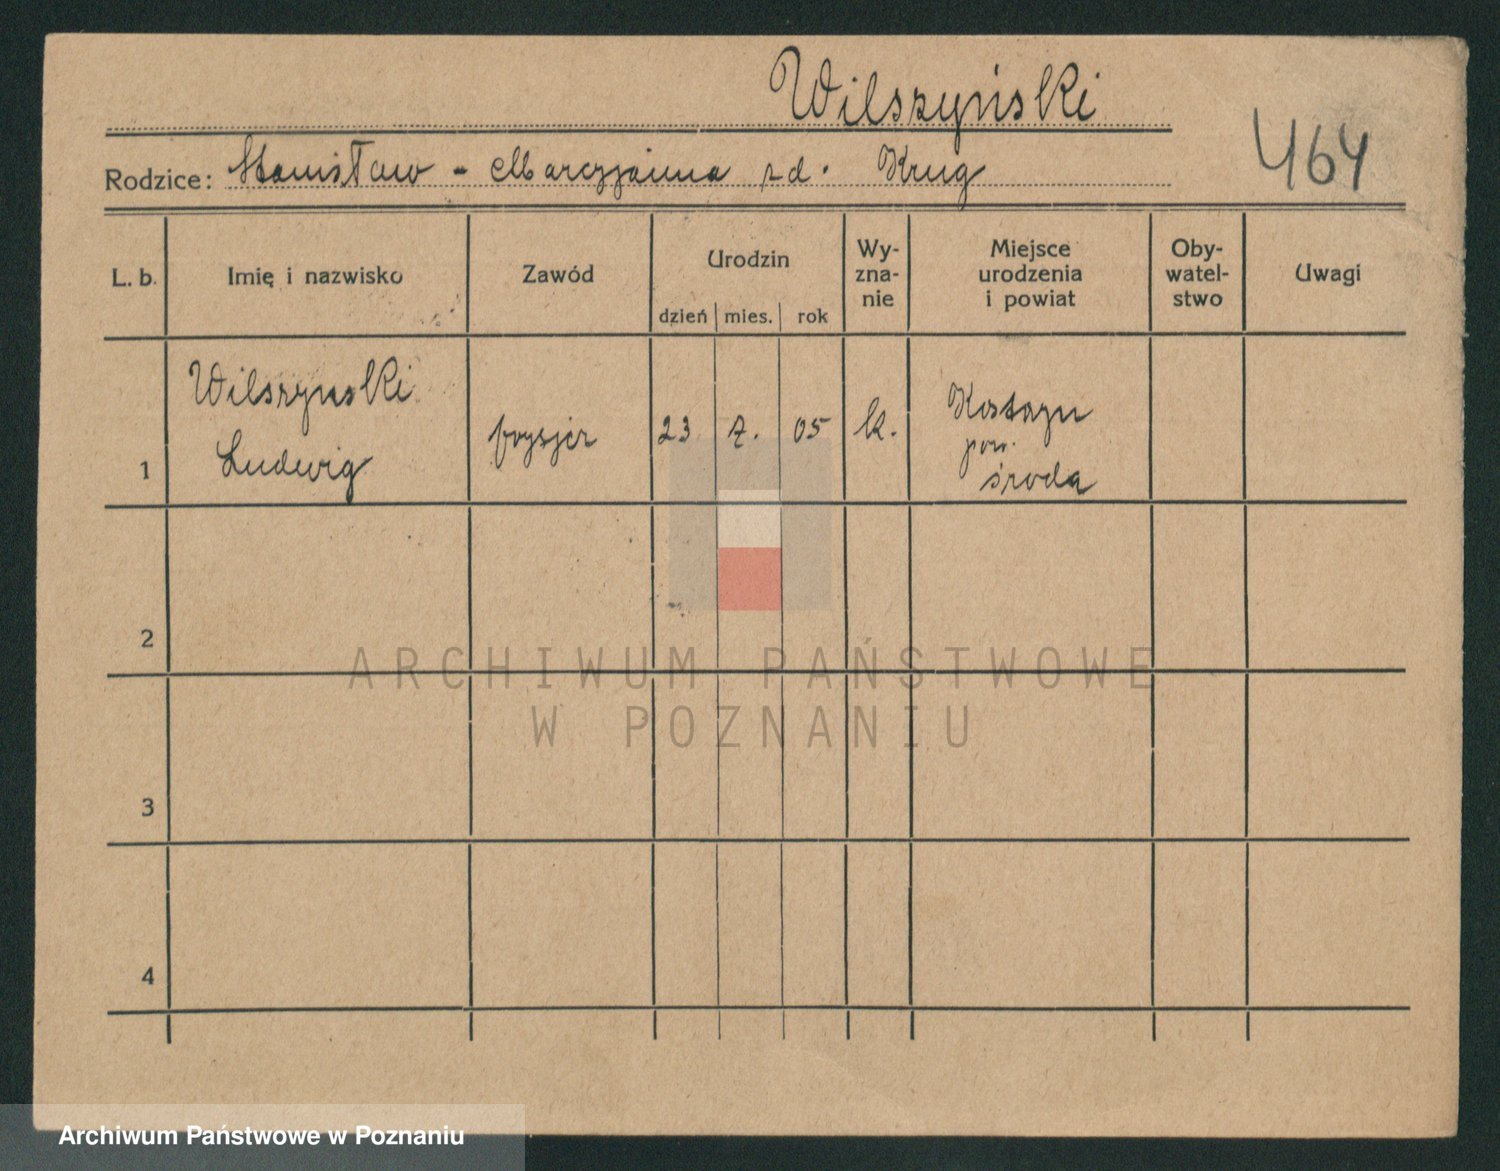 Wilszyński
464
Rodzice: Stanisław - Marcyjanna zd. Krug
L. b.
Imię i nazwisko
Zawód
Urodzin
dzień
mies.
rok
Wy-
zna-
nie
Miejsce
urodzenia
i powiat
Oby-
watel-
stwo
Uwagi
1
Wilszynski
Ludwig
frysjer
23
7.
05
k.
Kostrzyn
pow.
środa
2
3
4
ARCHIWUM PAŃSTWOWE
W POZNANIU
Archiwum Państwowe w Poznaniu